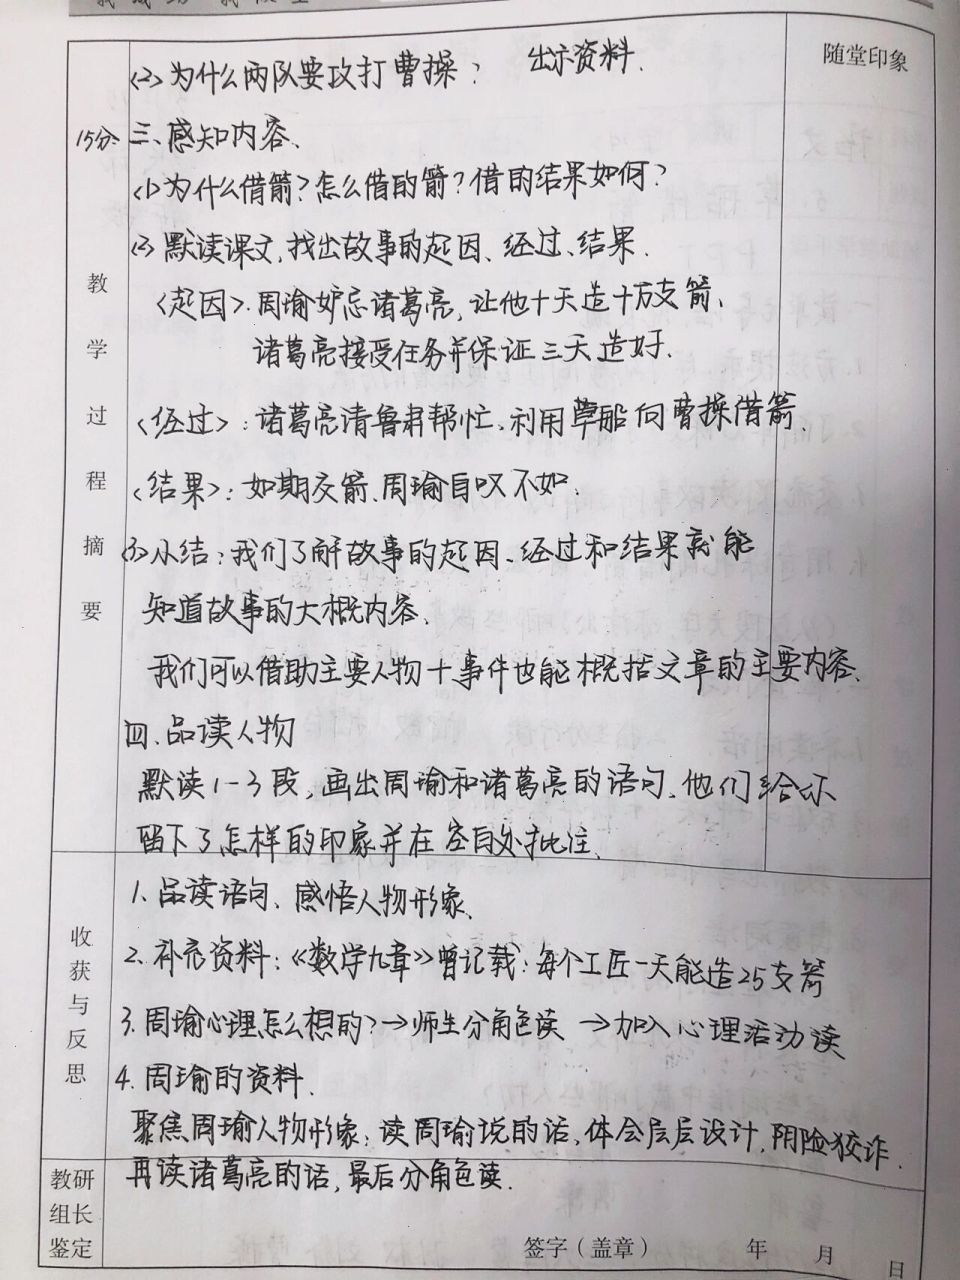 随堂印象
(2)为什么两队要攻打曹操? 出示资料.
15分 三、感知内容、
(1)为什么借箭?怎么借的箭?借的结果如何?
(2)默读课文,找出故事的起因、经过、结果.
<起因>.周瑜妒忌诸葛亮,让他十天造十万支箭、
诸葛亮接受任务并保证三天造好.
<经过>:诸葛亮请鲁肃帮忙、利用草船向曹操借箭.
<结果>:如期交箭、周瑜自叹不如.
(3)小结:我们了解故事的起因、经过和结果就能
知道故事的大概内容.
我们可以借助主要人物十事件也能概括文章的主要内容.
四、品读人物
默读1-3段,画出周瑜和诸葛亮的语句.他们给你
留下了怎样的印象并在空白处批注.
教学过程摘要
1.品读语句、感悟人物形象.
2.补充资料:《数学九章》曾记载:每个工匠一天能造25支箭
3.周瑜心理怎么想的?→师生分角色读→加入心理活动读
4.周瑜的资料.
聚焦周瑜人物形象:读周瑜说的话,体会层层设计,阴险狡诈.
再读诸葛亮的话,最后分角色读.
收获与反思
教研
组长
鉴定
签字(盖章) 年 月 日